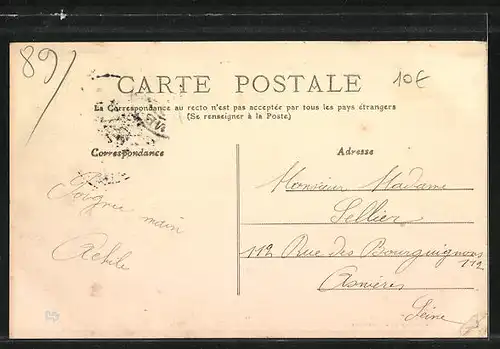 89)
CARTE POSTALE
10€
La Correspondance au recto n'est pas acceptée par tous les pays étrangers
(Se renseigner à la Poste)
Correspondance
Poignée main
Achile
Adresse
Monsieur Madame
Sellier
112 Rue des Bourguignons
112
Asnieres
Seine